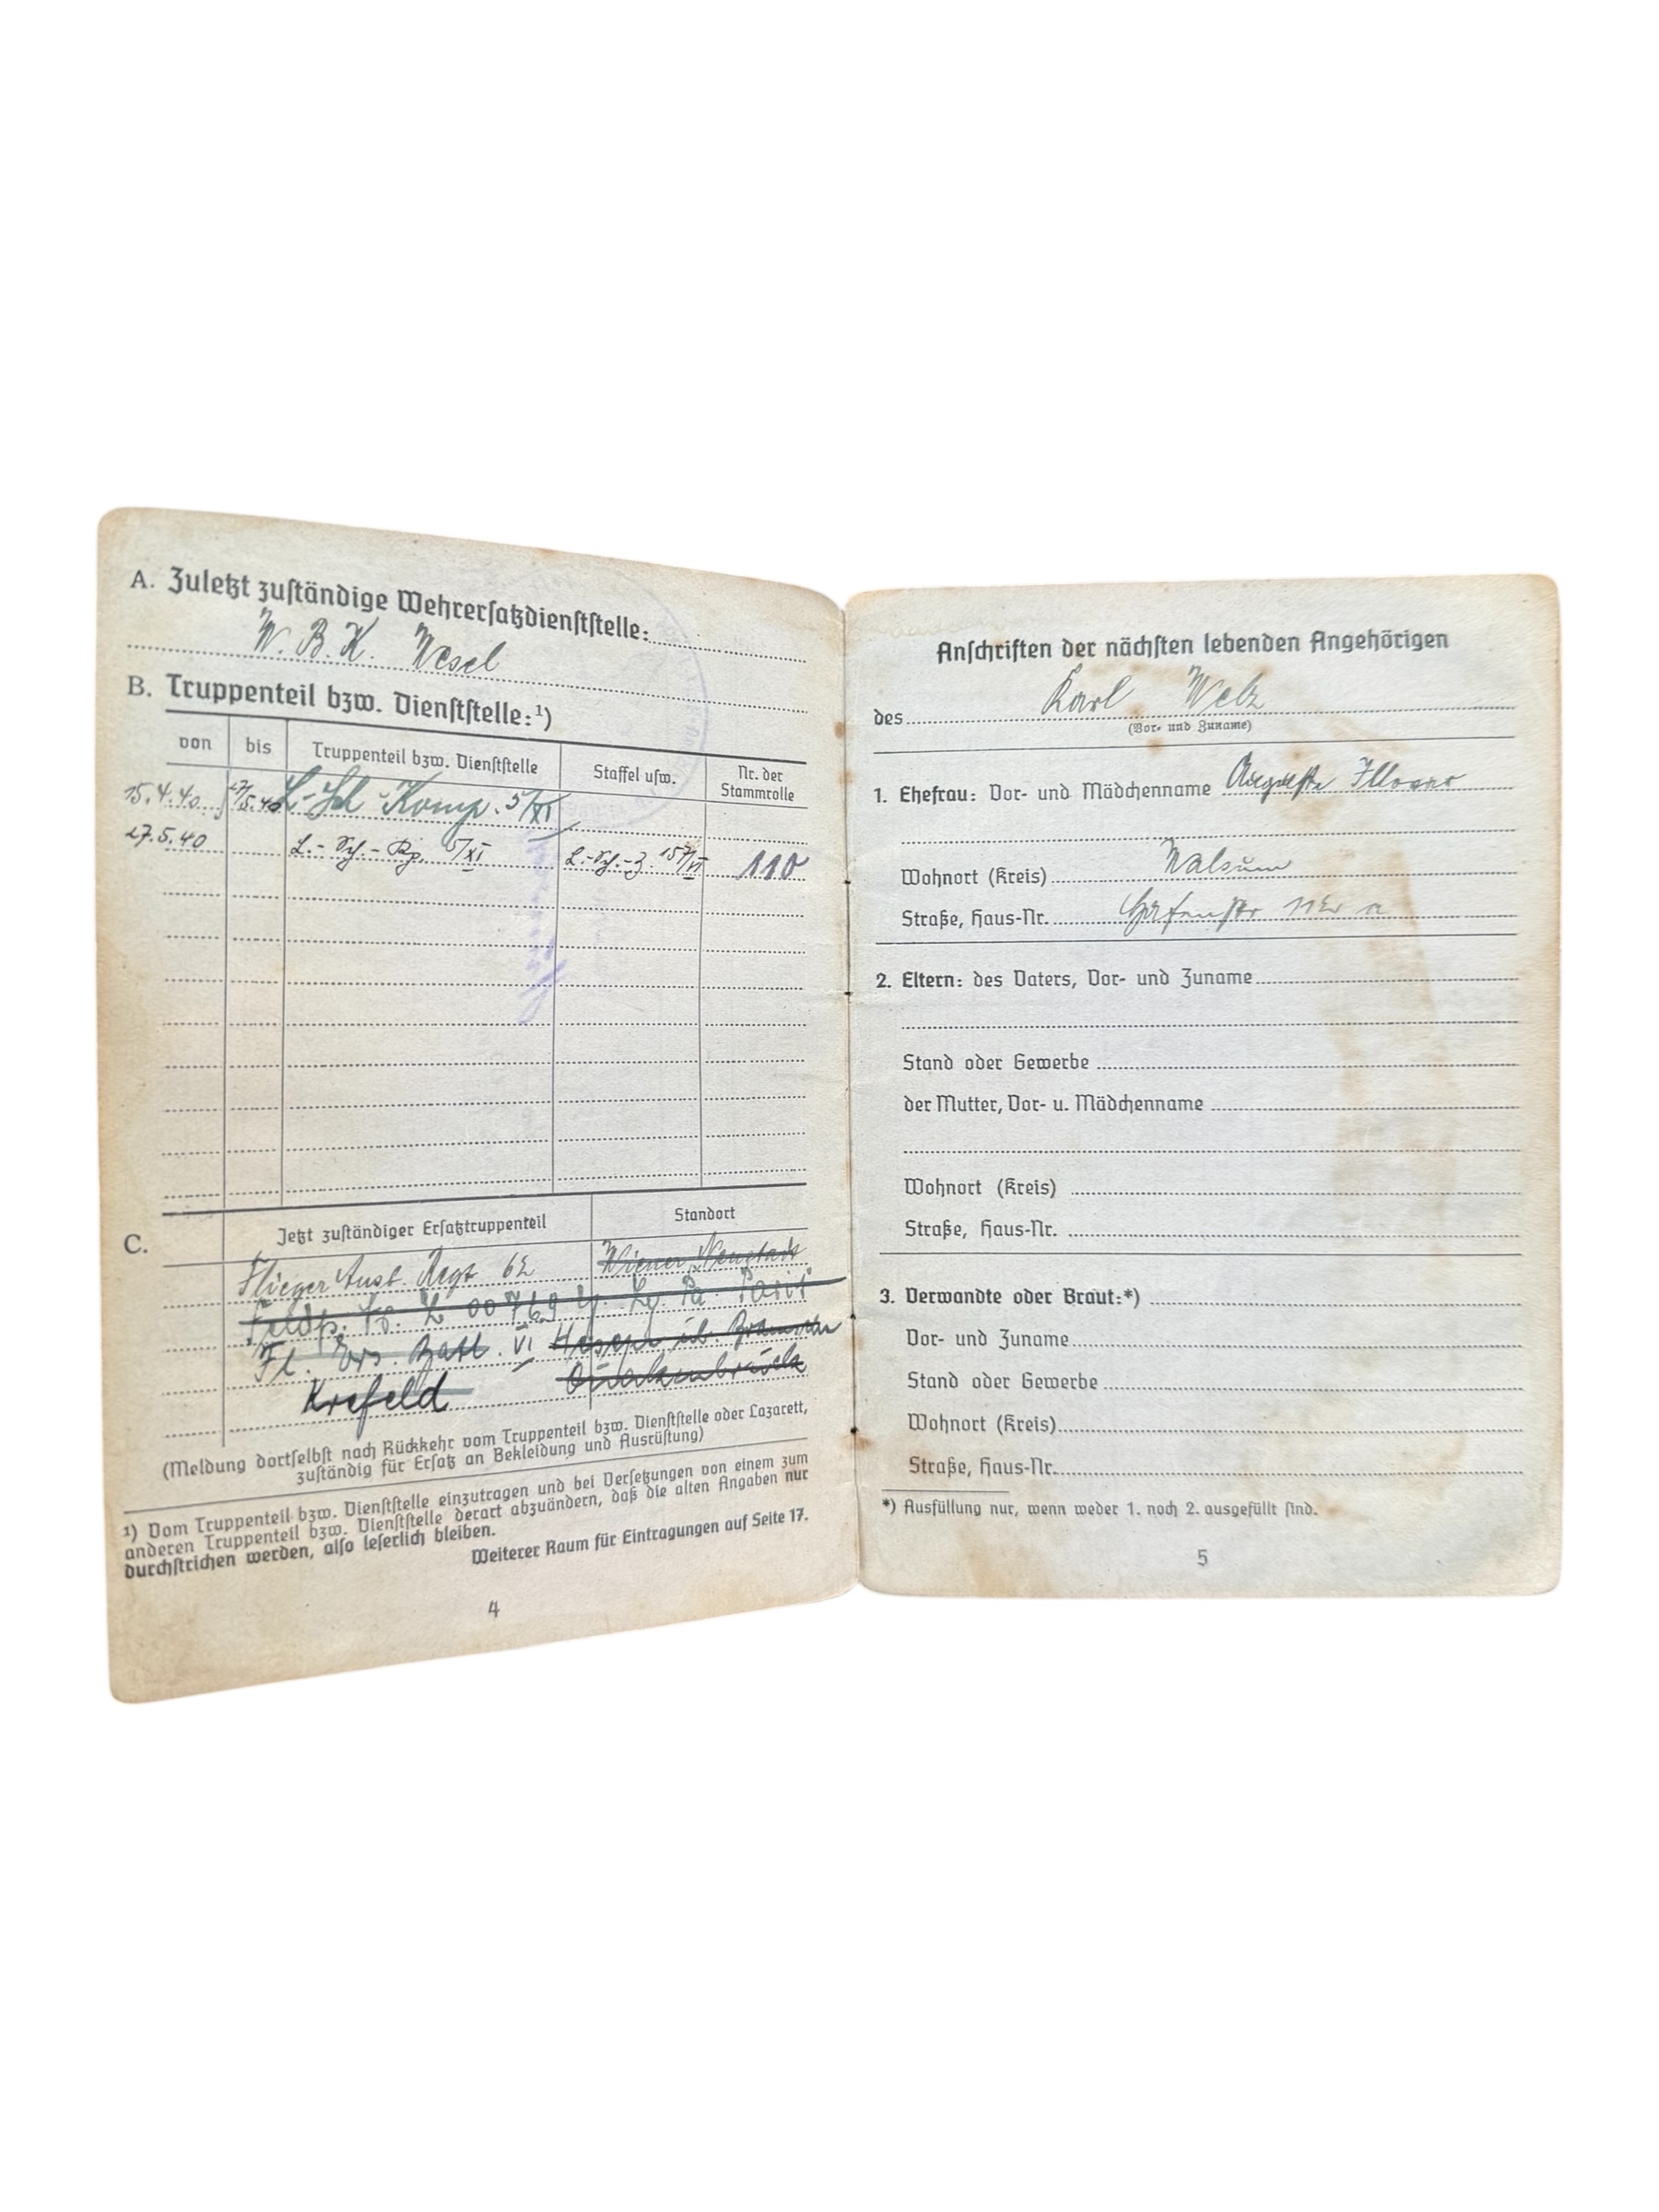 A. Zuletzt zuständige Wehrersatzdienststelle:
W. B. K. Wesel
B. Truppenteil bzw. Dienststelle:¹)
von bis Truppenteil bzw. Dienststelle Staffel usw. Nr. der Stammrolle
15.4.40 27/5.40 L.-Sch.-Komp. 5/XI
27.5.40 L.-Sch.-Kp. 5/XI L.-Sch.-Z. 157/VI 110
C. Jetzt zuständiger Ersatztruppenteil Standort
Flieger Ausb. Regt 62 Wiener Neustadt
Feldp. Nr. L 00769 Lg. Pa. Paris
Fl. Ers. Batl. VI Hesepe üb. Bramsche
Krefeld Quakenbrück
(Meldung dortselbst nach Rückkehr vom Truppenteil bzw. Dienststelle oder Lazarett,
zuständig für Ersatz an Bekleidung und Ausrüstung)
¹) Vom Truppenteil bzw. Dienststelle einzutragen und bei Versetzungen von einem zum
anderen Truppenteil bzw. Dienststelle derart abzuändern, daß die alten Angaben nur
durchstrichen werden, also leserlich bleiben.
Weiterer Raum für Eintragungen auf Seite 17.
4
Anschriften der nächsten lebenden Angehörigen
des Karl Welz
(Vor- und Zuname)
1. Ehefrau: Vor- und Mädchenname Auguste
Wohnort (Kreis) Walsum
Straße, Haus-Nr. Hafenstr
2. Eltern: des Vaters, Vor- und Zuname
Stand oder Gewerbe
der Mutter, Vor- u. Mädchenname
Wohnort (Kreis)
Straße, Haus-Nr.
3. Verwandte oder Braut:*)
Vor- und Zuname
Stand oder Gewerbe
Wohnort (Kreis)
Straße, Haus-Nr.
*) Ausfüllung nur, wenn weder 1. noch 2. ausgefüllt sind.
5